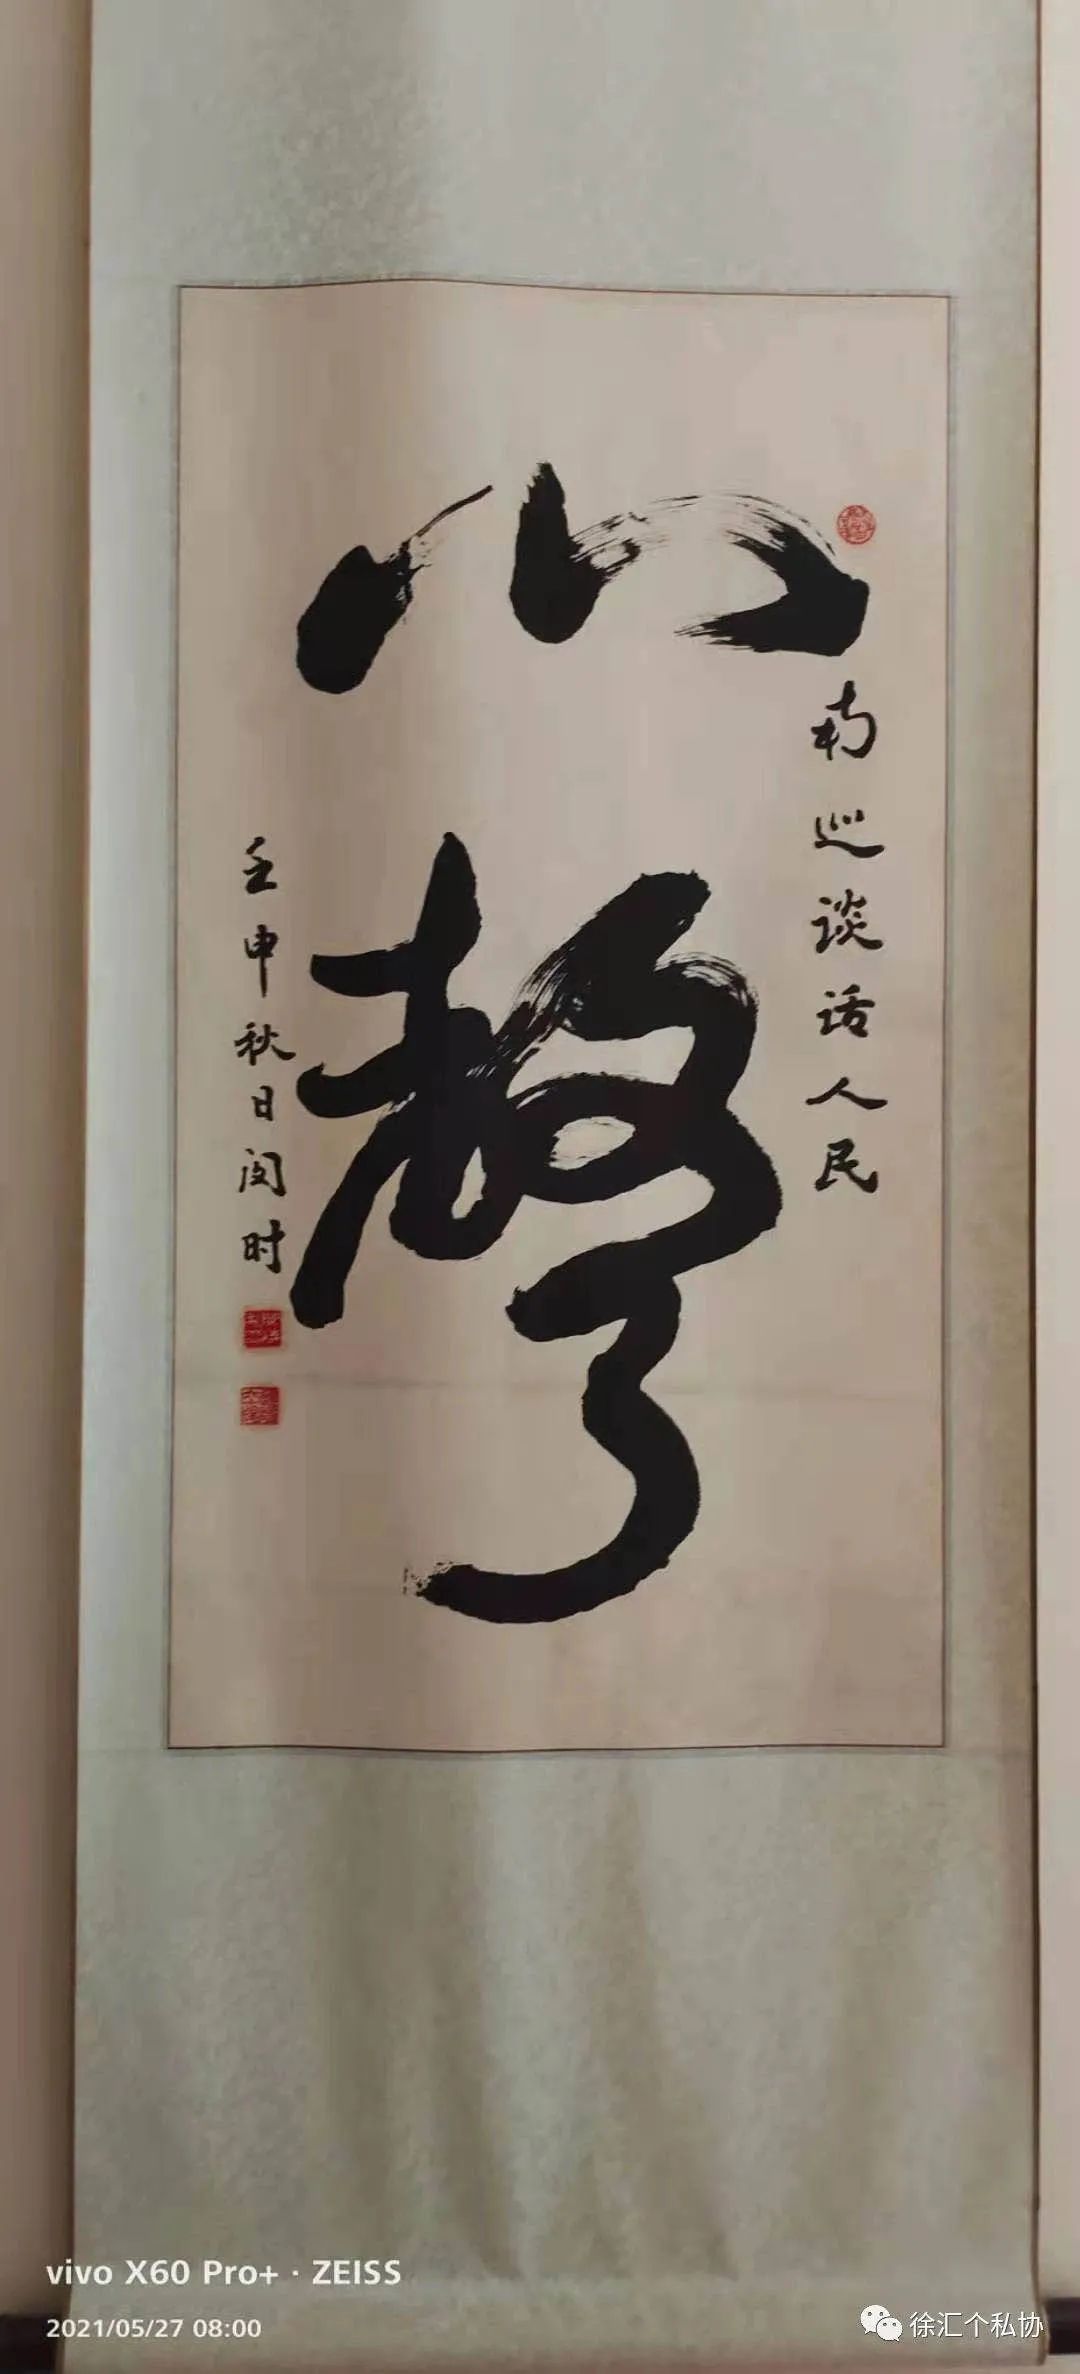 南巡谈话人民
心声
壬申秋日闵时
vivo X60 Pro+ · ZEISS
2021/05/27 08:00
徐汇个私协